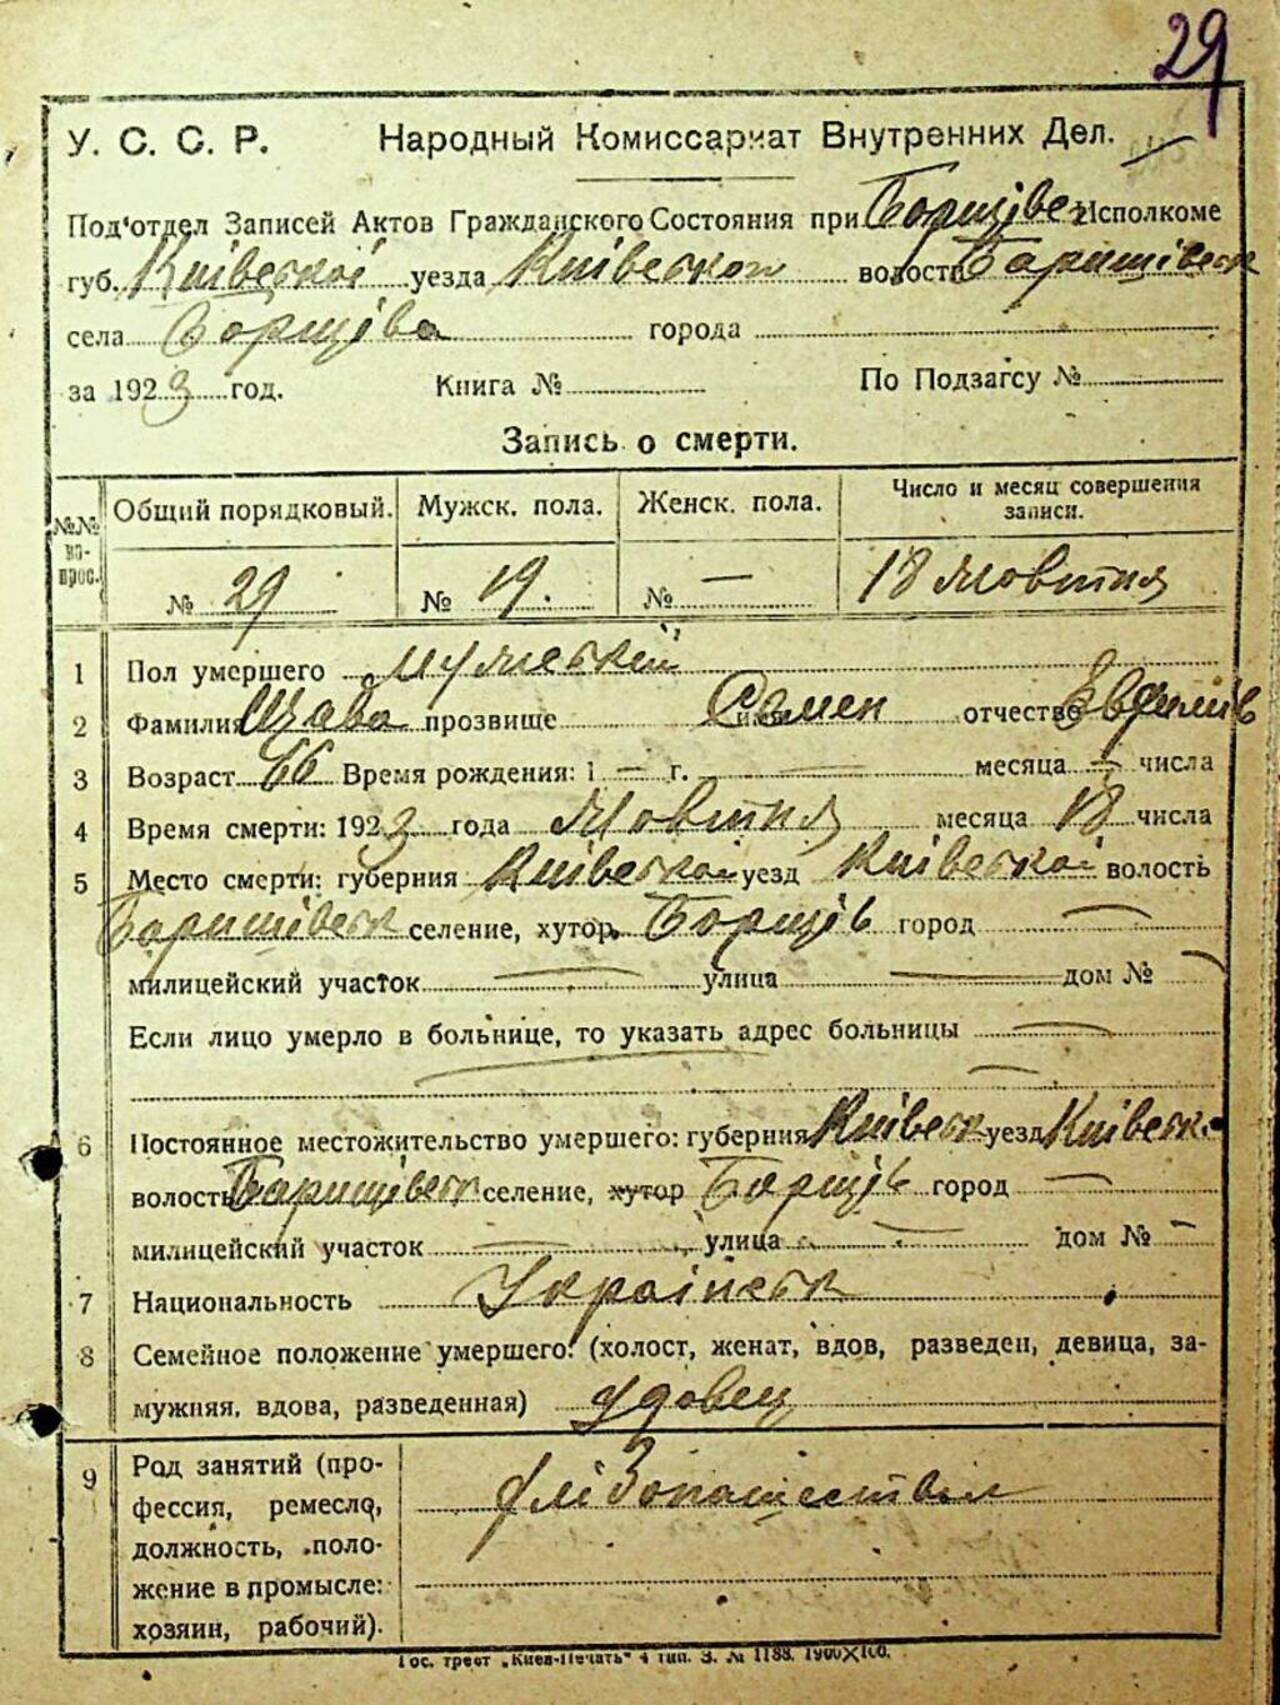 29
У. С. С. Р. Народный Комиссариат Внутренних Дел.
Под'отдел Записей Актов Гражданского Состояния при Борщівс Исполкоме
губ. Київської уезда Київської волости Баришівськ
села Борщіва города
за 1923 год. Книга № По Подзагсу №
Запись о смерти.
№№ во-прос. Общий порядковый. Мужск. пола. Женск. пола. Число и месяц совершения записи.
№ 29 № 19. № — 18 Жовтня
1 Пол умершего Мужський
2 Фамилия прозвище имя Семен отчество Євфимів
3 Возраст 66 Время рождения: 1 — г. — месяца — числа
4 Время смерти: 1923 года Жовтня месяца 18 числа
5 Место смерти: губерния Київської уезд Київської волость
Баришівськ селение, хутор Борщів город —
милицейский участок — улица — дом № —
Если лицо умерло в больнице, то указать адрес больницы —
6 Постоянное местожительство умершего: губерния Київськ уезд Київськ.
волость Баришівськ селение, хутор Борщів город —
милицейский участок — улица — дом № —
7 Национальность Українськ
8 Семейное положение умершего: (холост, женат, вдов, разведен, девица, за-
мужняя, вдова, разведенная) удовец
9 Род занятий (про-
фессия, ремесло,
должность, поло-
жение в промысле:
хозяин, рабочий).
Гос. трест „Киев-Печать" 4 тип. З. № 1188. 1900×100.